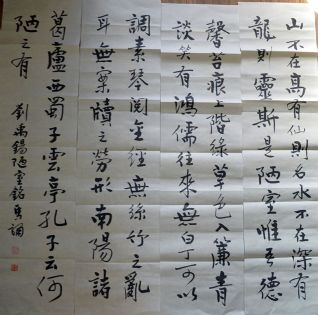 山不在高有仙則名水不在深有
龍則靈斯是陋室惟吾德
馨苔痕上階綠草色入簾青
談笑有鴻儒往來無白丁可以
調素琴閱金經無絲竹之亂
耳無案牘之勞形南陽諸
葛廬西蜀子雲亭孔子云何
陋之有
劉禹錫陋室銘